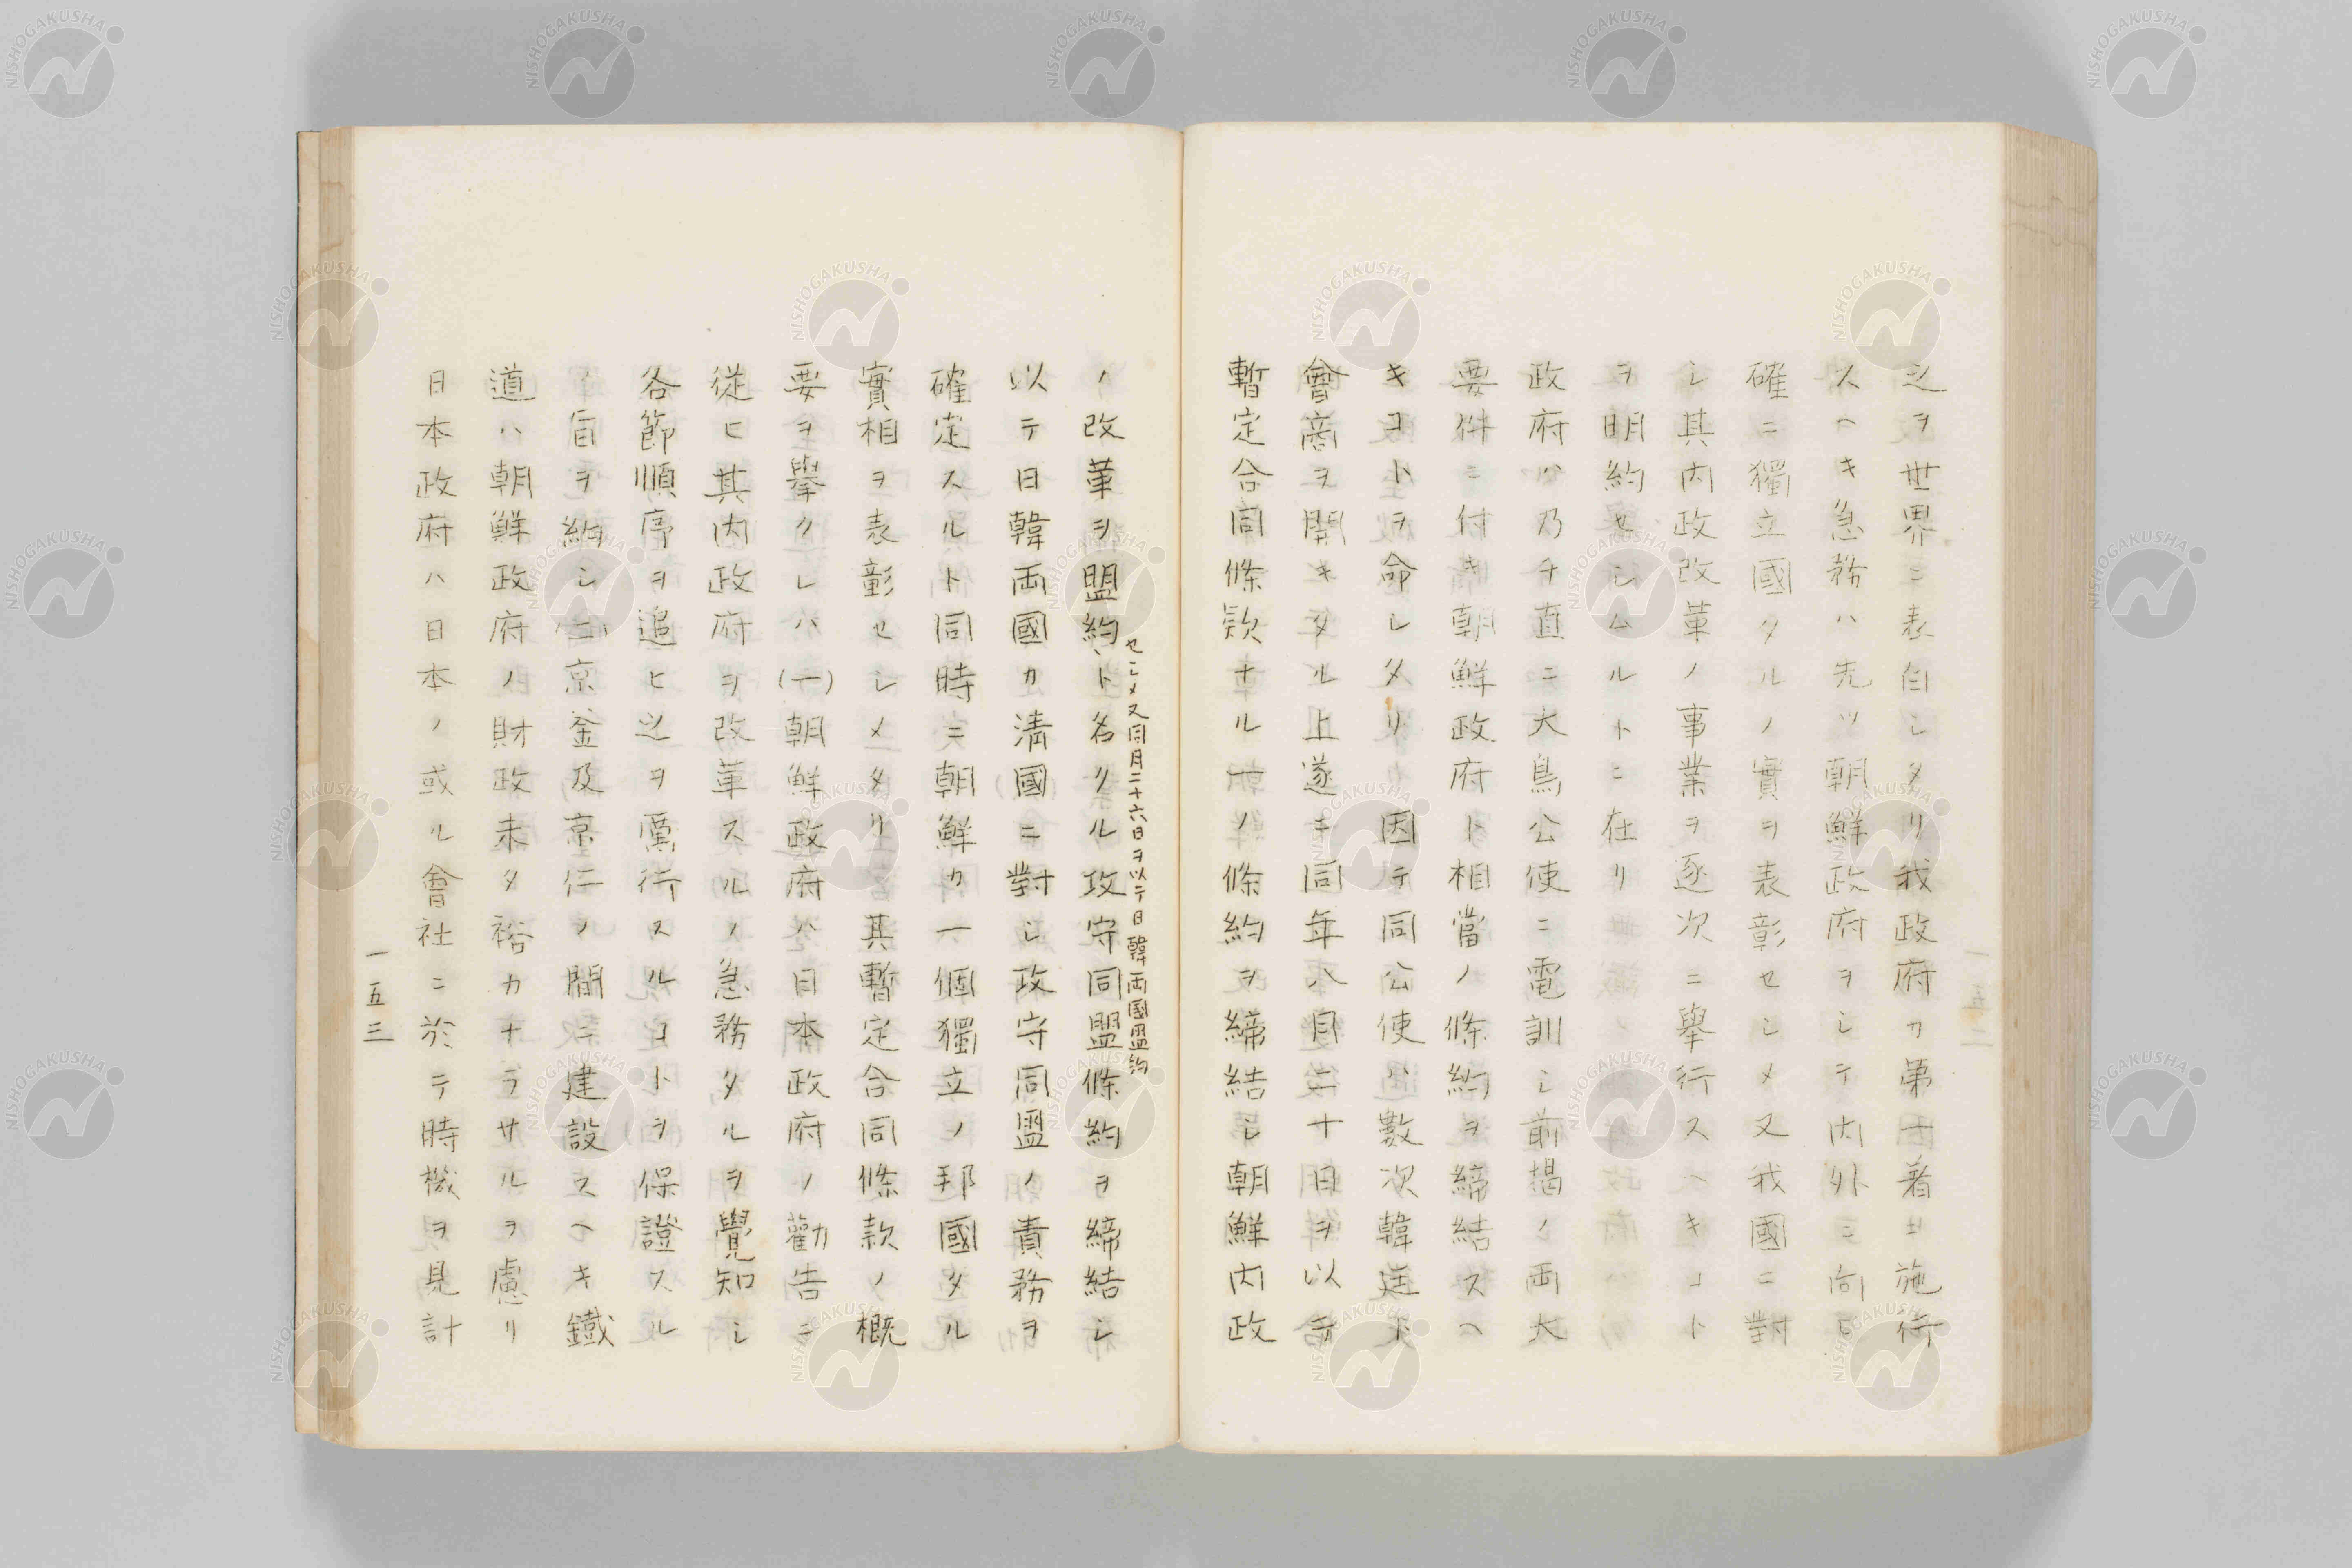 之ヲ世界ニ表白シタリ我政府カ第一着ニ施行
スヘキ急務ハ先ツ朝鮮政府ヲシテ内外ニ向テ
確ニ獨立國タルノ實ヲ表彰セシメ又我國ニ對
シ其内政改革ノ事業ヲ逐次ニ擧行スヘキコト
ヲ明約セシムルトニ在リ
政府ハ乃チ直ニ大鳥公使ニ電訓シ前掲ノ両大
要件ニ付キ朝鮮政府ト相當ノ條約ヲ締結スヘ
キコトヲ命シタリ 因テ同公使ハ數次韓廷ト
會商ヲ開キタル上遂ニ同年八月二十日ヲ以テ
暫定合同條欵ナル一ノ條約ヲ締結シ朝鮮内政
ノ改革ヲ盟約ト名クル攻守同盟條約ヲ締結シ
セシメ又同月二十六日ヲ以テ日韓両國盟約
以テ日韓両國カ清國ニ對シ攻守同盟ノ責務ヲ
確定スルト同時ニ朝鮮カ一個獨立ノ邦國タル
實相ヲ表彰セシメタリ 其暫定合同條款ノ概
要ヲ擧クレハ(一)朝鮮政府ハ日本政府ノ勸告ニ
従ヒ其内政府ヲ改革スルノ急務タルヲ覺知シ
各節順序ヲ追ヒ之ヲ厲行スルコトヲ保證スル
ノ旨ヲ納シ(二)京釜及京仁ノ間ニ建設スヘキ鐵
道ハ朝鮮政府ノ財政未タ裕カナラサルヲ慮リ
日本政府ハ日本ノ或ル會社ニ於テ時機ヲ見計
一五三